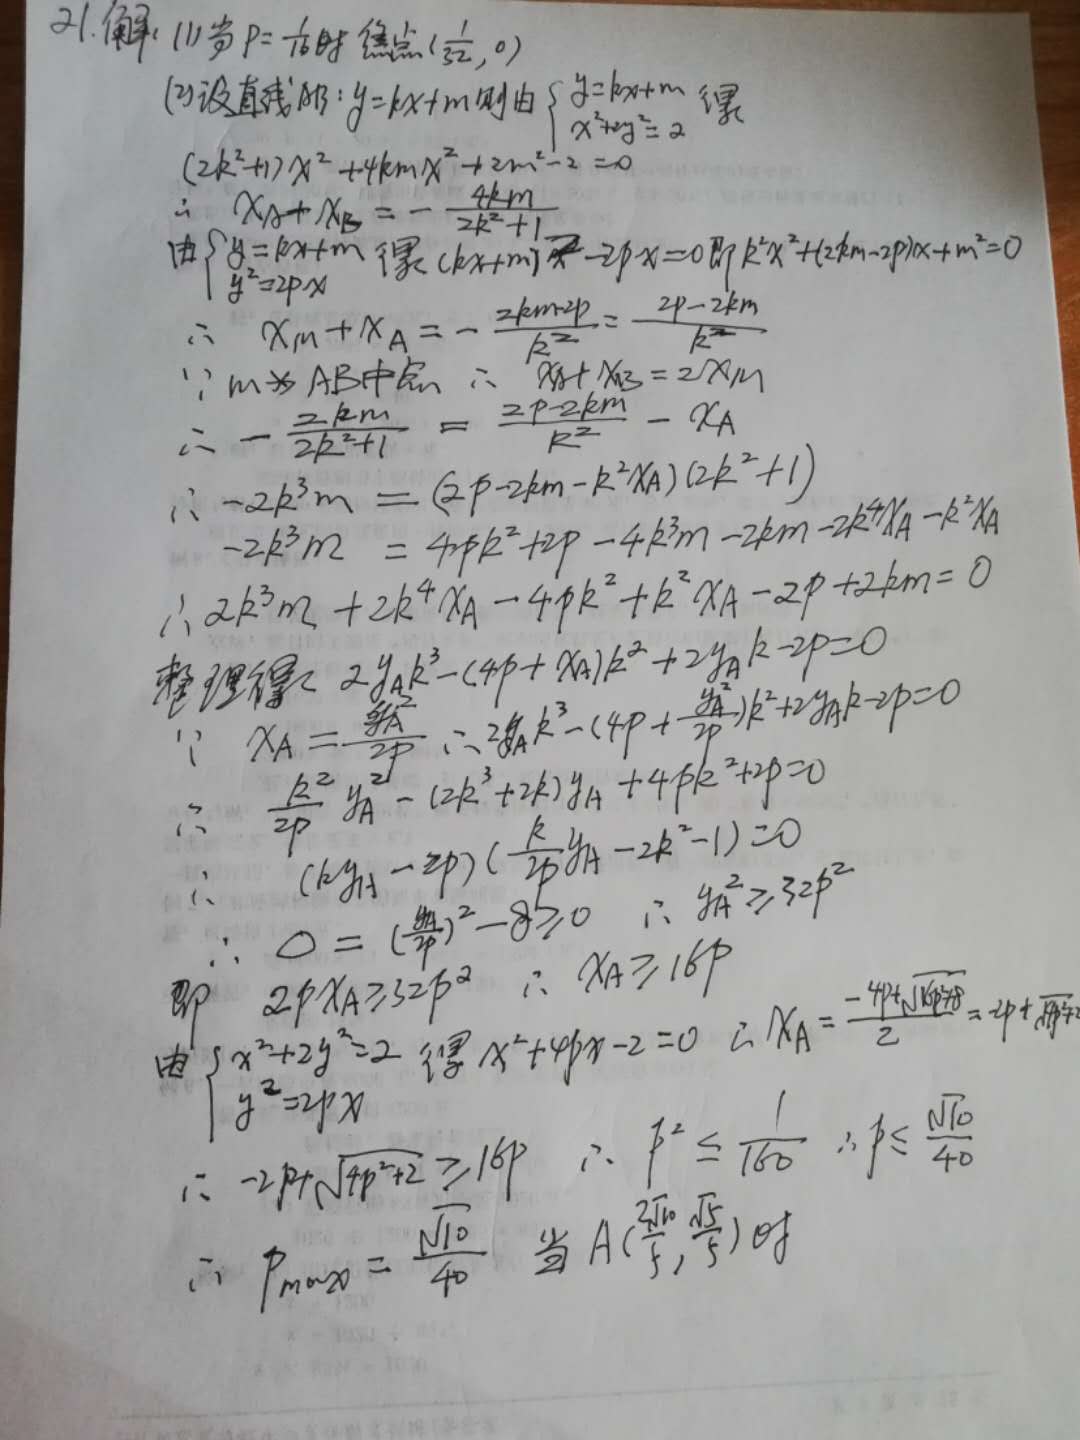 21.解: (1)当p=1/16时 焦点(1/32,0)
(2)设直线AB:y=kx+m则由{y=kx+m x²+2y²=2 得
(2k²+1)x²+4kmx²+2m²-2=0
∴ x_A+x_B=-4km/(2k²+1)
由{y=kx+m y²=2px 得(kx+m)²-2px=0即k²x²+(2km-2p)x+m²=0
∴ x_M+x_A=-(2km-2p)/k²=(2p-2km)/k²
∵ M为AB中点 ∴ x_A+x_B=2x_M
∴ -2km/(2k²+1)=(2p-2km)/k²-x_A
∴ -2k³m=(2p-2km-k²x_A)(2k²+1)
-2k³m=4pk²+2p-4k³m-2km-2k⁴x_A-k²x_A
∴ 2k³m+2k⁴x_A-4pk²+k²x_A-2p+2km=0
整理得 2y_Ak³-(4p+x_A)k²+2y_Ak-2p=0
∵ x_A=y_A²/2p ∴ 2y_Ak³-(4p+y_A²/2p)k²+2y_Ak-2p=0
∴ k²/2p y_A²-(2k³+2k)y_A+4pk²+2p=0
∴ (ky_A-2p)(k/2p y_A-2k²-1)=0
∴ 0=(y_A/2p)²-8≥0 ∴ y_A²≥32p²
即 2px_A≥32p² ∴ x_A≥16p
由{x²+2y²=2 y²=2px 得 x²+4px-2=0 ∴ x_A=(-4p+√(16p²+8))/2=-2p+√(4p²+2
∴ -2p+√(4p²+2)≥16p ∴ p²≤1/160 ∴ p≤√10/40
∴ p_max=√10/40 当A(2√10/5,√5/5)时